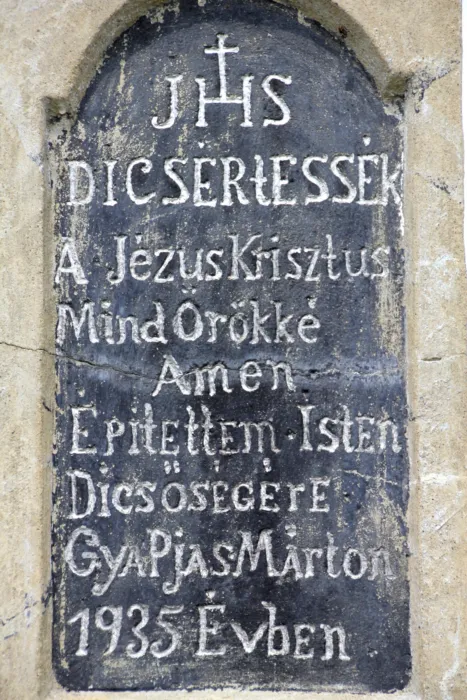 JHS
DICSĖRtESSĖk
A JėzusKrisztus
MindÖrökké
Amen
Ėpitettem Isten
Dicsőségėre
GyaPjasMȧrton
1935 Ėvben